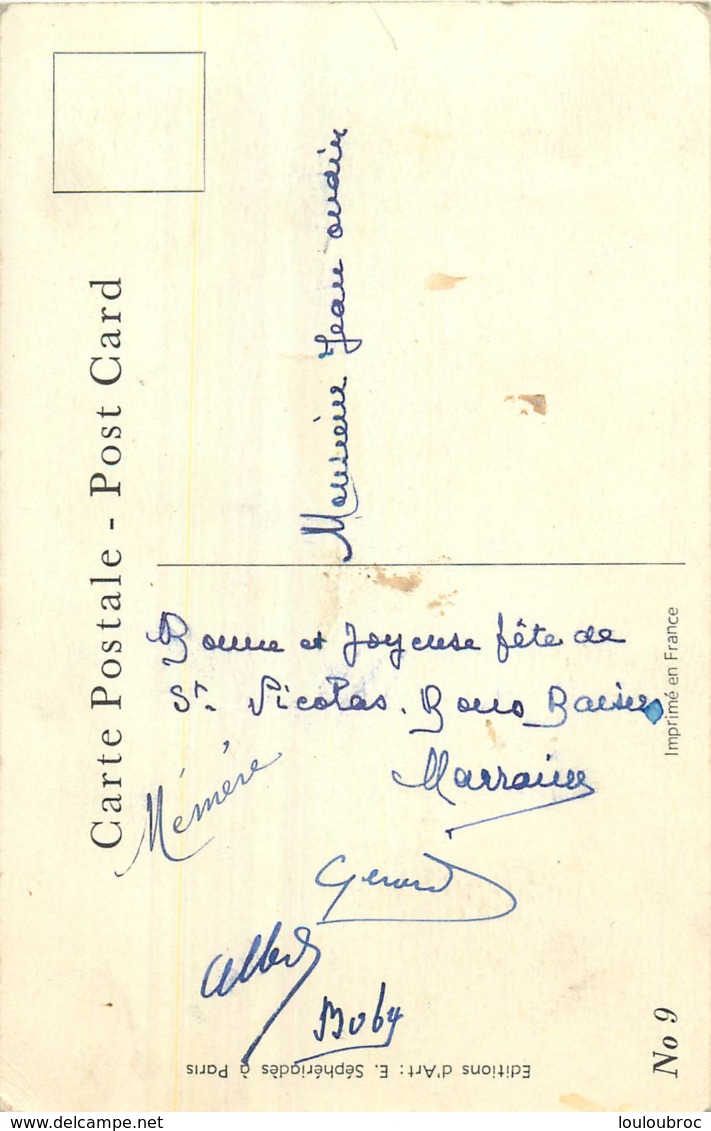 Carte Postale - Post Card
Monsieur Jean
Bonne et Joyeuse fête de
St. Nicolas. Bons Baisers
Marraine
Mémère
Gérard
Albert
Boby
Imprimé en France
Editions d'Art: E. Séphériadès à Paris
No 9
louloubroc